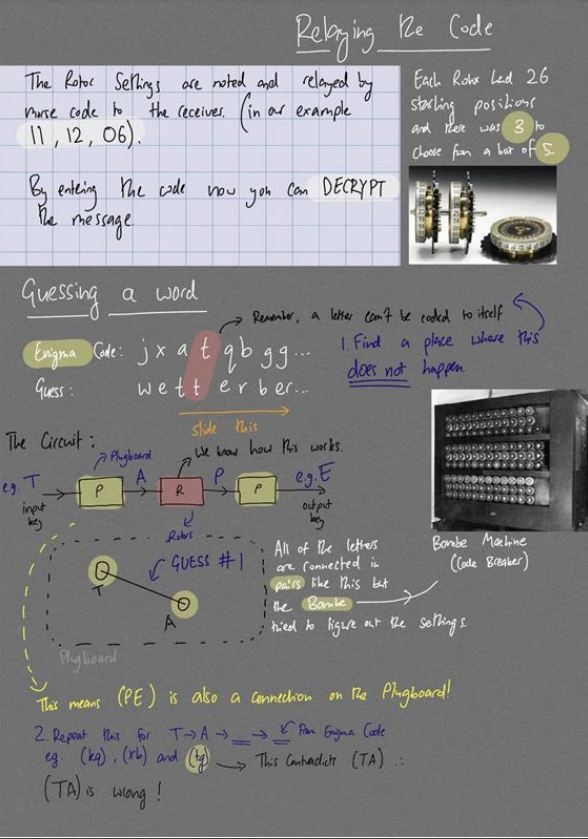 Relaying the Code
The Rotor Settings are noted and relayed by
morse code to the receivers. (in our example
11, 12, 06).
By entering the code now you can DECRYPT
the message.
Each Rotor had 26
starting positions
and there was 3 to
choose from a box of 5.
Guessing a word
Remember, a letter can't be coded to itself
Enigma Code: j x a t q b g g ...
Guess: w e t t e r b e r ...
slide this
1. Find a place where this
does not happen.
The Circuit:
Plugboard
We know how this works.
e.g. T
input
key
P
A
R
P
P
e.g. E
output
key
Rotors
GUESS #1
T
A
Plugboard
All of the letters
are connected in
pairs like this but
the Bombe
tried to figure out the settings.
Bombe Machine
(Code Breaker)
This means (PE) is also a connection on the Plugboard!
2. Repeat this for T → A → __ → __ From Enigma Code
eg. (kq), (xb) and (tg) → This contradicts (TA) ∴
(TA) is wrong!